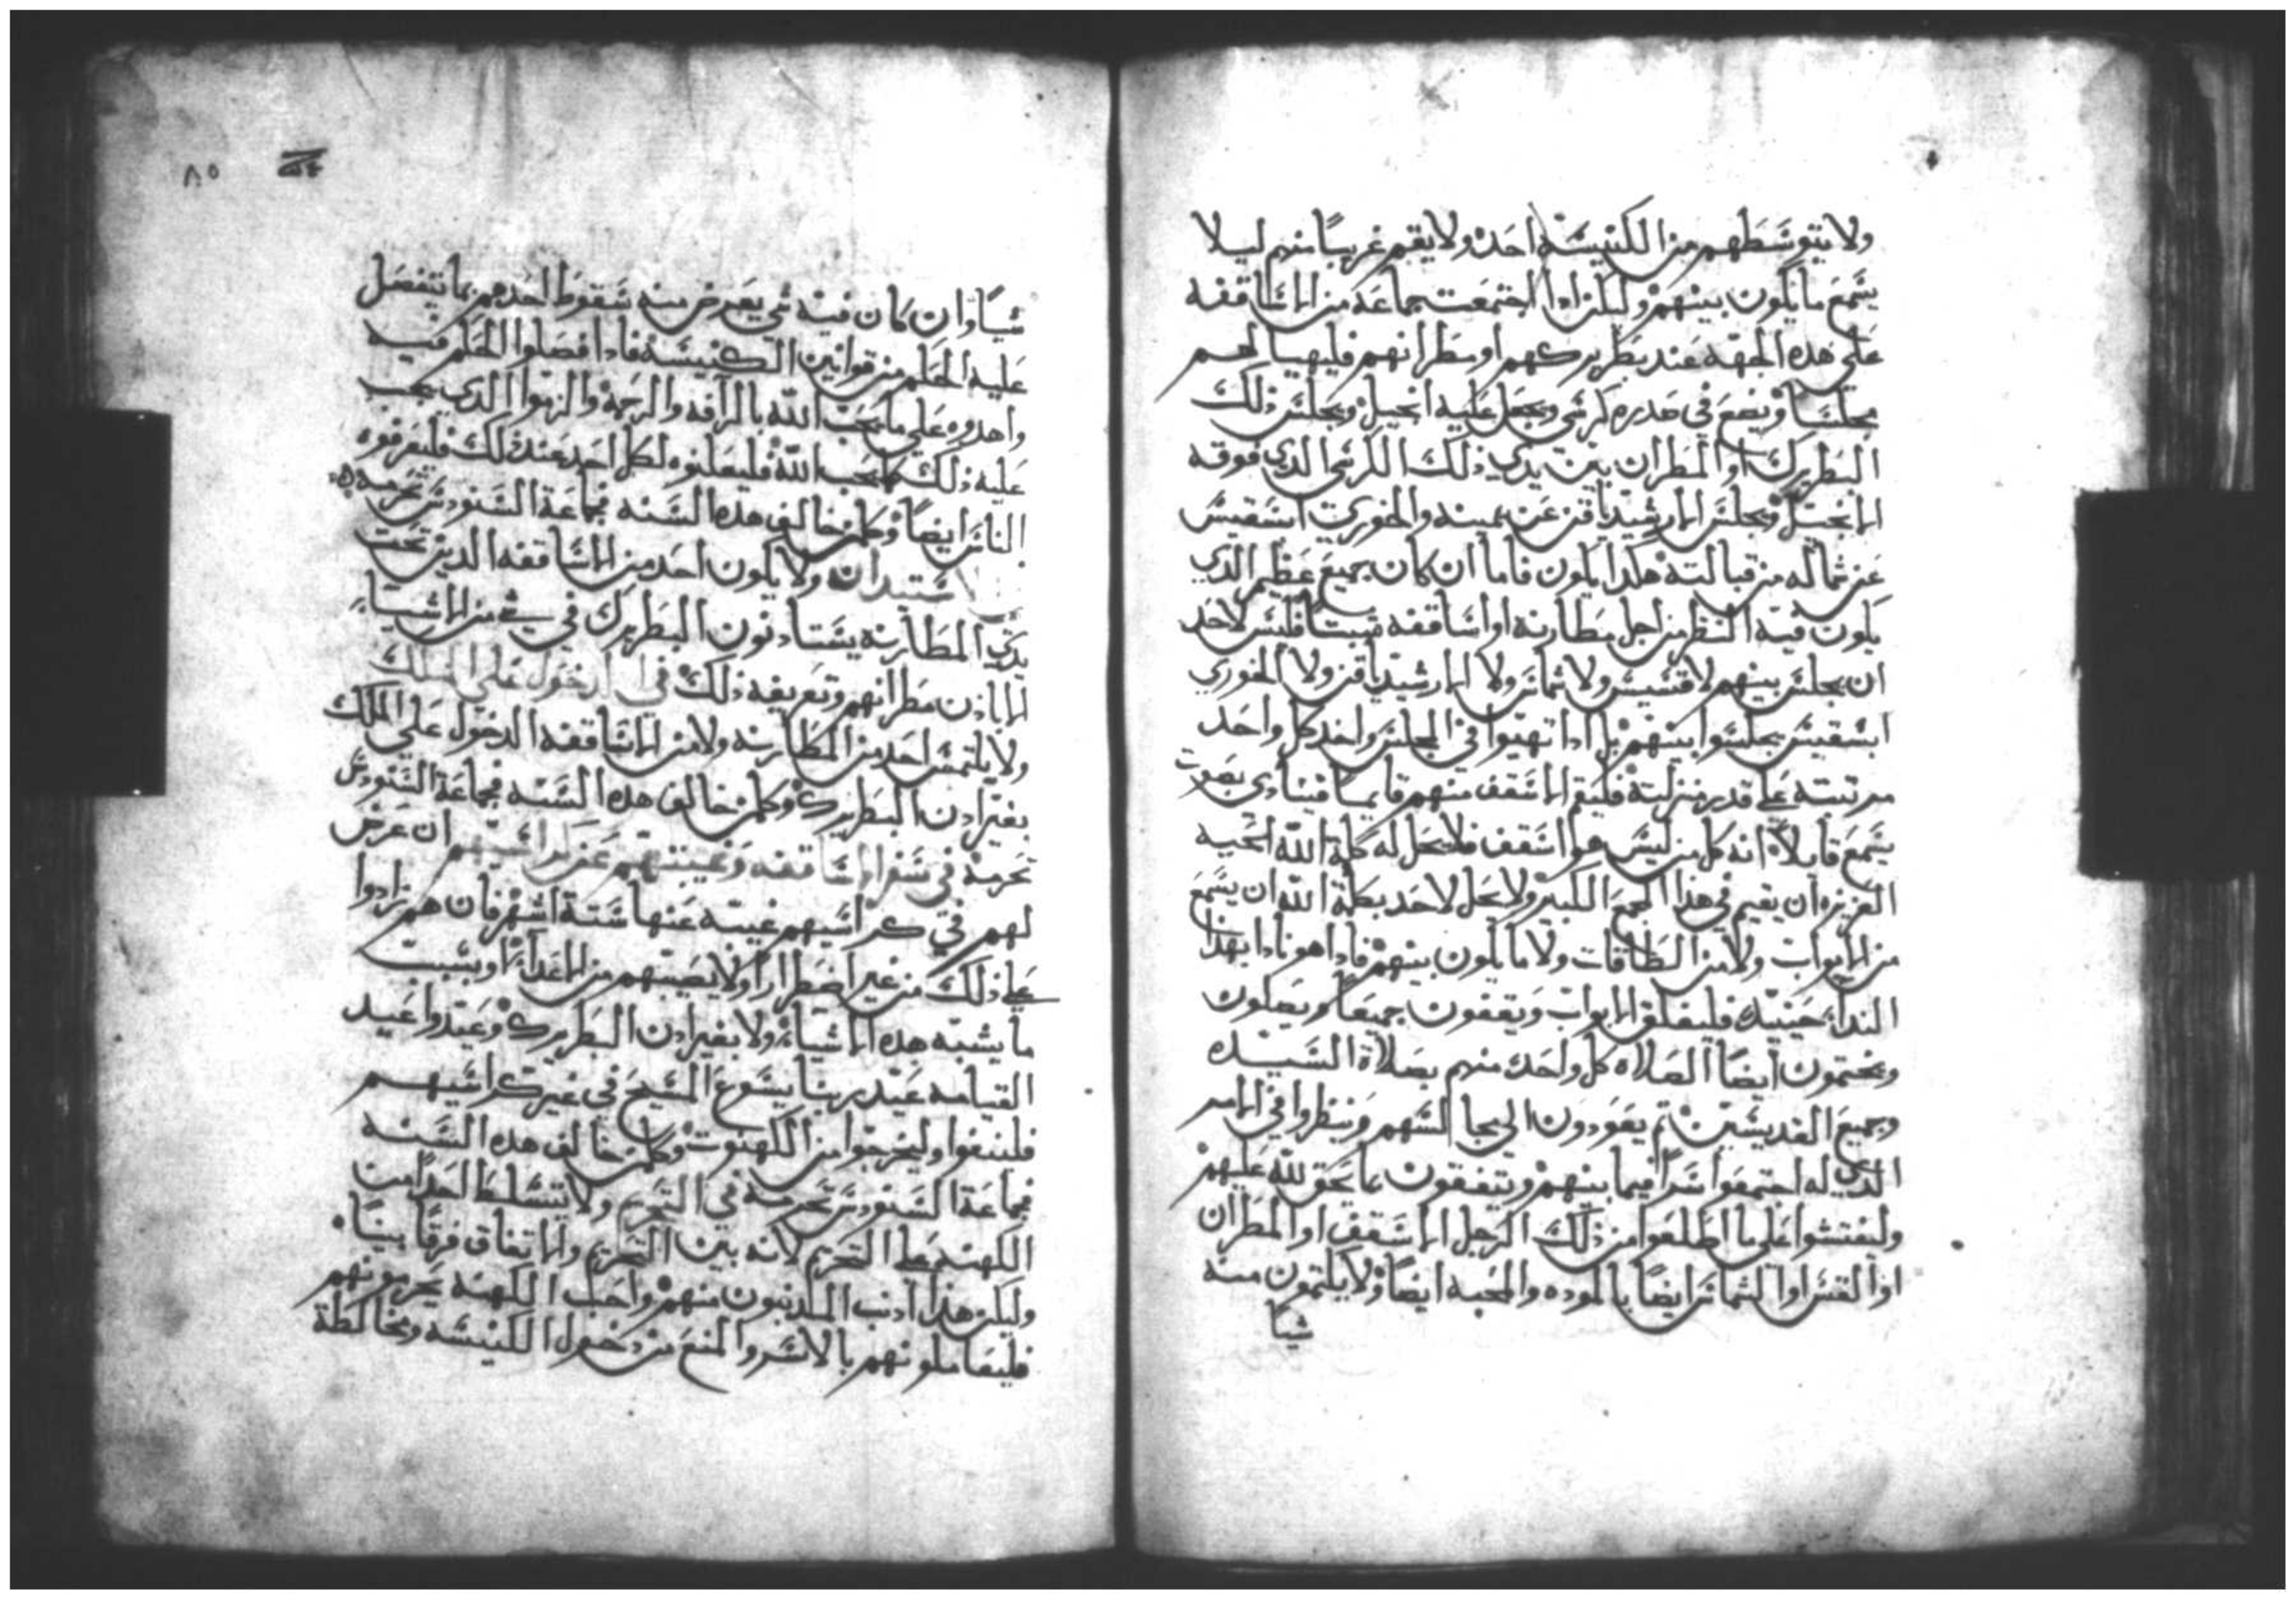 ولا يتوسطهم من الكنيسة احد ولا يقيم غريبًا منهم ليلا
يسمع ما يكون بينهم وليكن اذا اجتمعت جماعه من الاساقفه
على هذه الجهه عند بطريركهم او مطرانهم فليهيا لهم
مجلسًا ويضع في صدره كرسي ويجعل عليه انجيل ويجلس ذلك
البطريرك او المطران بين يدي ذلك الكرسي الذي فوقه
الانجيل ويجلس الارشيدياقن عن يمينه والخوري ابسقبس
عن شماله من قبالته هكذا يكون فاما ان كان جميع عظيم الذي
يكون فيه النظر من اجل مطارنه او اساقفه فليس لاحد
ان يجلس بينهم لا قسيس ولا شماس ولا الارشيدياقن ولا الخوري
ابسقبس يجلسوا بينهم بل اذا تهيوا في المجلس واخد كل واحد
مرتبته على قدر منزلته فليقم الاسقف منهم قايمًا فينادي بصوت
يسمع قايلاً انه كل من ليس هو اسقف فلا يحل له كلمة الله الحيه
العزيزه ان يقيم في هذا المجمع الكبير ولا يحل لاحد بكلمة الله ان يسمع
من الابواب ولا من الطاقات ولا ما يكون بينهم فاذا هو نادا بهذا
الندا حينيذ فليغلق الابواب ويقفون جميعًا ويصلون
ويختمون ايضًا الصلاه كل واحد منهم بصلاة السيده
وجميع القديسين ثم يعودون الى مجالسهم وينظروا في الامر
الذي له اجتمعوا سرًا فيما بينهم ويتفقون بما يحق لله عليهم
وليفتشوا على ما اطلعوا من ذلك الرجل الاسقف او المطران
او القس او الشماس ايضًا بالموده والمحبه ايضًا ولا يكتمون منه
شيًا
٨٥
شيًا وان كان فيه شي يعرض منه سقوط احدهم بما يفصل
عليه الحكم من قوانين الكنيسة فاذا فصلوا الحكم فيه
واهدوه على ما يحب الله بالرافه والرحمة والهوا الذي يجب
عليه ذلك كما يحب الله فليعلنوه لكل احد عند ذلك فليعرفوه
الناس ايضًا وكل من خالف هذه السنه فجماعة السنودس تحرمه
ستيدان ولا يكون احد من الاساقفه الذين تحت
يدي المطارنه يستادنون البطريرك في شي من الاشياء
الا باذن مطرانهم وتعريفه ذلك في الدخول على الملك
ولا يلتمس احد من المطارنه ولا من الاساقفه الدخول على الملك
بغير اذن البطريرك وكل من خالف هذه السنه فجماعة السنودس
تحرمه في سفر الاساقفه وغيبتهم عن كراسيهم ان عرض
لهم في كراسيهم غيبه عنها ستة اشهر فان هم زادوا
على ذلك من غير اضطرار ولا يصيبهم من الاعدا او بسبب
ما يشبه هذه الاشياء ولا بغير اذن البطريرك وعيدوا عيد
القيامه عيد ربنا يسوع المسيح في غير كراسيهم
فلينفوا وليخرجوا من الكهنوت وكل من خالف هذه السنه
فجماعة السنودس تحرمه في التحريم ولا يتسلط احدًا من
الكهنه على التحريم لانه بين التحريم والاتفاق فرقًا بينًا
وليكن هذا ادب المذنبون منهم واحباب الكهنه يحرمونهم
فليعاملونهم بالاشر والمنع من دخول الكنيسه ومخالطة